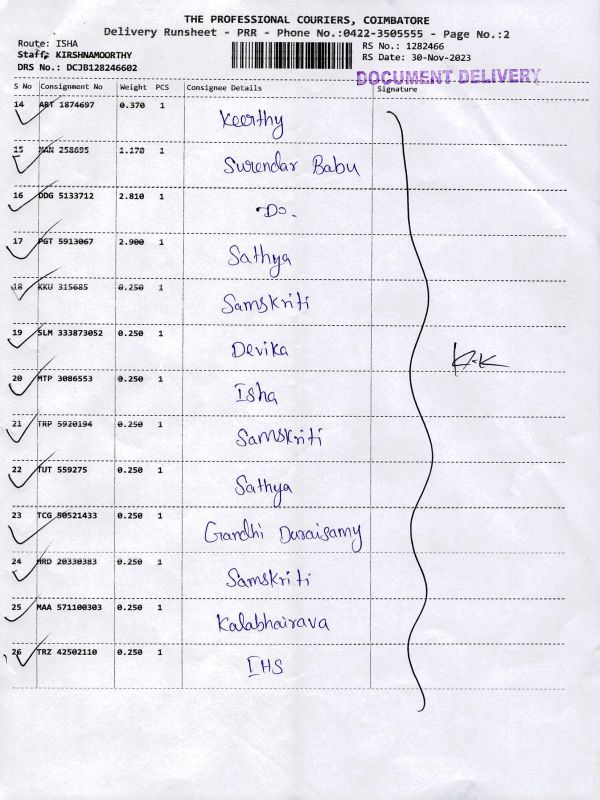 THE PROFESSIONAL COURIERS, COIMBATORE
Delivery Runsheet - PRR - Phone No.:0422-3505555 - Page No.:2
Route: ISHA
Staff: KIRSHNAMOORTHY
DRS No.: DCJB128246602
RS No.: 1282466
RS Date: 30-Nov-2023
DOCUMENT DELIVERY
S No Consignment No Weight PCS Consignee Details Signature
14 ABT 1874697 0.370 1 Keerthy
15 MAN 258695 1.170 1 Surendar Babu
16 DDG 5133712 2.810 1 Do.
17 PGT 5913067 2.900 1 Sathya
18 KKU 315685 0.250 1 Samskriti
19 SLM 333873052 0.250 1 Devika
20 MTP 3086553 0.250 1 Isha
21 TRP 5920194 0.250 1 Samskriti
22 TUT 559275 0.250 1 Sathya
23 TCG 50521433 0.250 1 Gandhi Duraisamy
24 HRD 20330383 0.250 1 Samskriti
25 MAA 571100303 0.250 1 Kalabhairava
26 TRZ 42502110 0.250 1 IHS